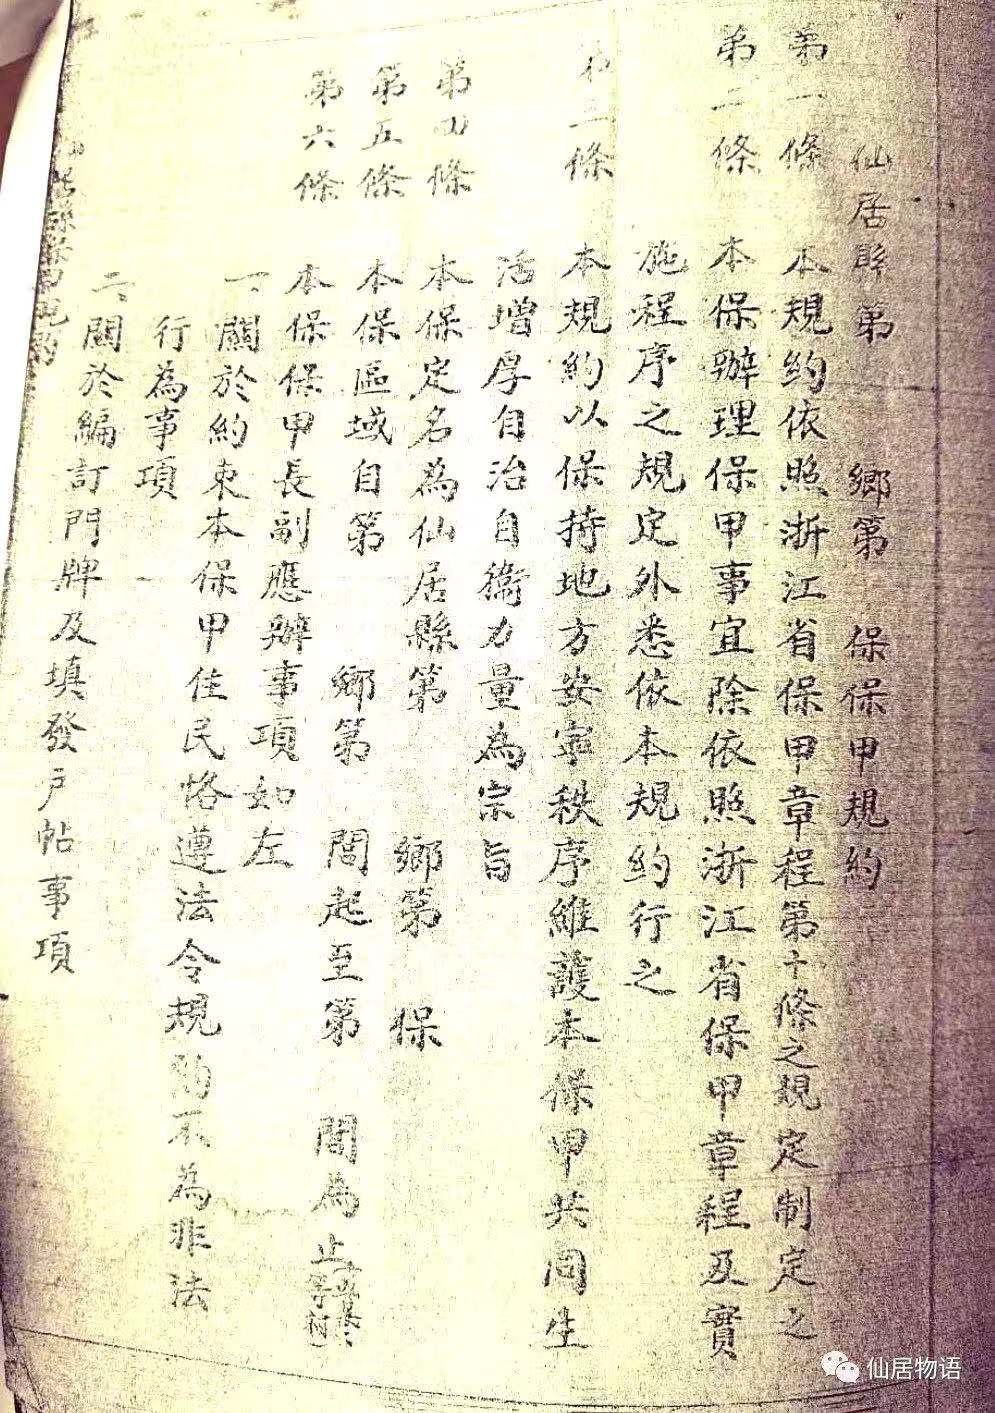 仙居縣第　鄉第　保保甲規約
第一條　本規約依照浙江省保甲章程第十條之規定制定之
第二條　本保辦理保甲事宜除依照浙江省保甲章程及實
施程序之規定外悉依本規約行之
第三條　本規約以保持地方安寧秩序維護本保甲共同生
活增厚自治自衛力量為宗旨
第四條　本保定名為仙居縣第　鄉第　保
第五條　本保區域自第　鄉第　閭起至第　閭為止
第六條　本保保甲長副應辦事項如左
一、關於約束本保甲住民恪遵法令規約不為非法
行為事項
二、關於編訂門牌及填發戶帖事項
仙居縣保甲規約
仙居物语